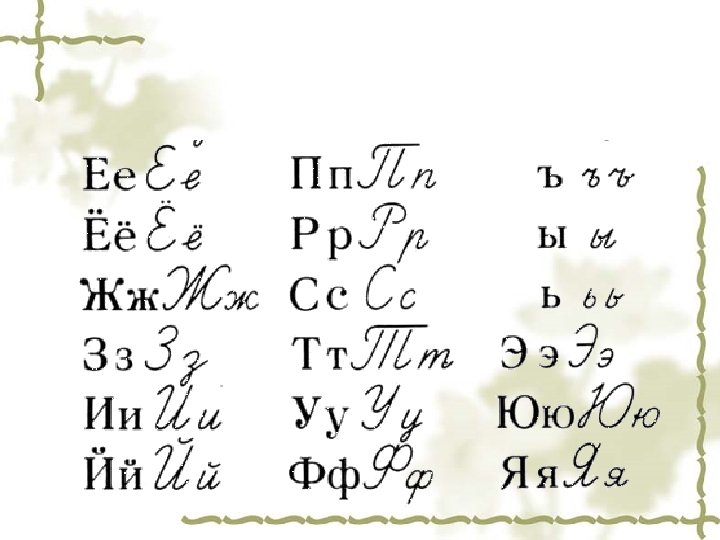 Ее Ее Пп Пп ъ ъъ
Ёё Ёё Рр Рр ы ы
Жж Жж Сс Сс ь ьь
Зз Зз Тт Тт Ээ Ээ
Ии Ии Уу Уу Юю Юю
Йй Йй Фф Фф Яя Яя